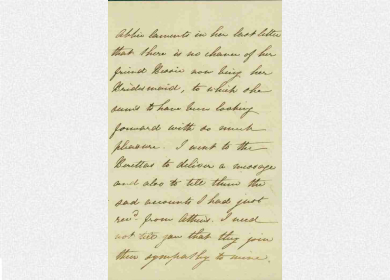 Abbie laments in her last letter
that there is no chance of her
friend Bessie now being her
Bridesmaid, to which she
seems to have been looking
forward with so much
pleasure. I went to the
to deliver a message
and also to tell them the
sad accounts I had just
recd. from Athens. I need
not tell you that they join
their sympathy to mine.